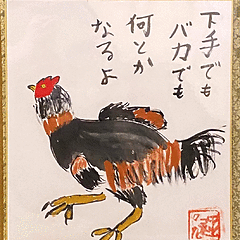 下手でも
バカでも
何とか
なるよ